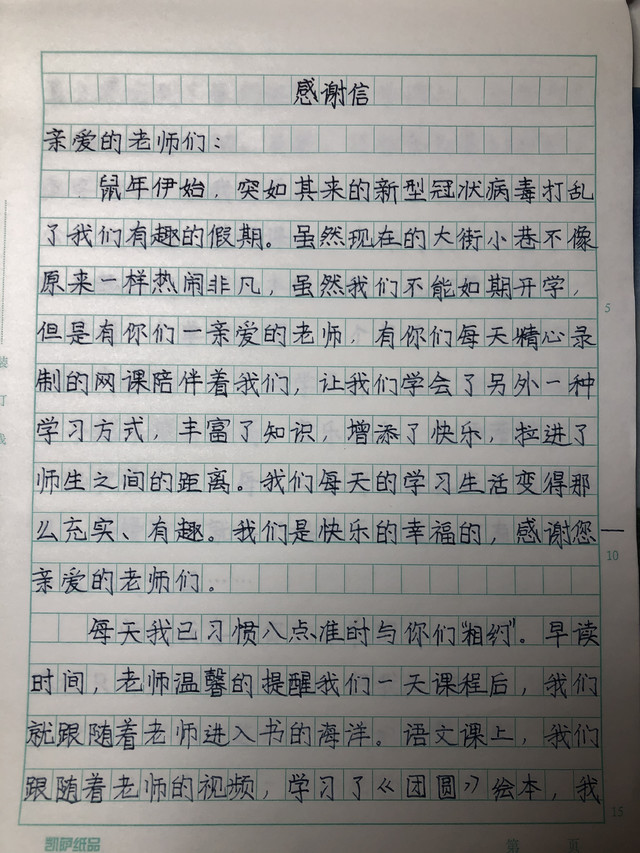 感谢信
亲爱的老师们：
鼠年伊始，突如其来的新型冠状病毒打乱
了我们有趣的假期。虽然现在的大街小巷不像
原来一样热闹非凡，虽然我们不能如期开学，
5
但是有你们一亲爱的老师，有你们每天精心录
制的网课陪伴着我们，让我们学会了另外一种
学习方式，丰富了知识，增添了快乐，拉进了
师生之间的距离。我们每天的学习生活变得那
么充实、有趣。我们是快乐的幸福的，感谢您
10
亲爱的老师们。
每天我已习惯八点准时与你们"相约"。早读
时间，老师温馨的提醒我们一天课程后，我们
就跟随着老师进入书的海洋。语文课上，我们
跟随着老师的视频，学习了《团圆》绘本，我
15
凯萨纸品
第 页
装
订
线